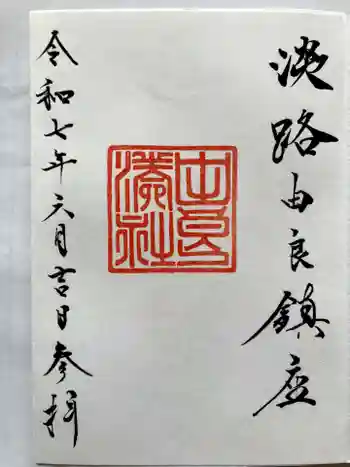 淡路由良鎮座
由良湊社
令和七年六月吉日参拝